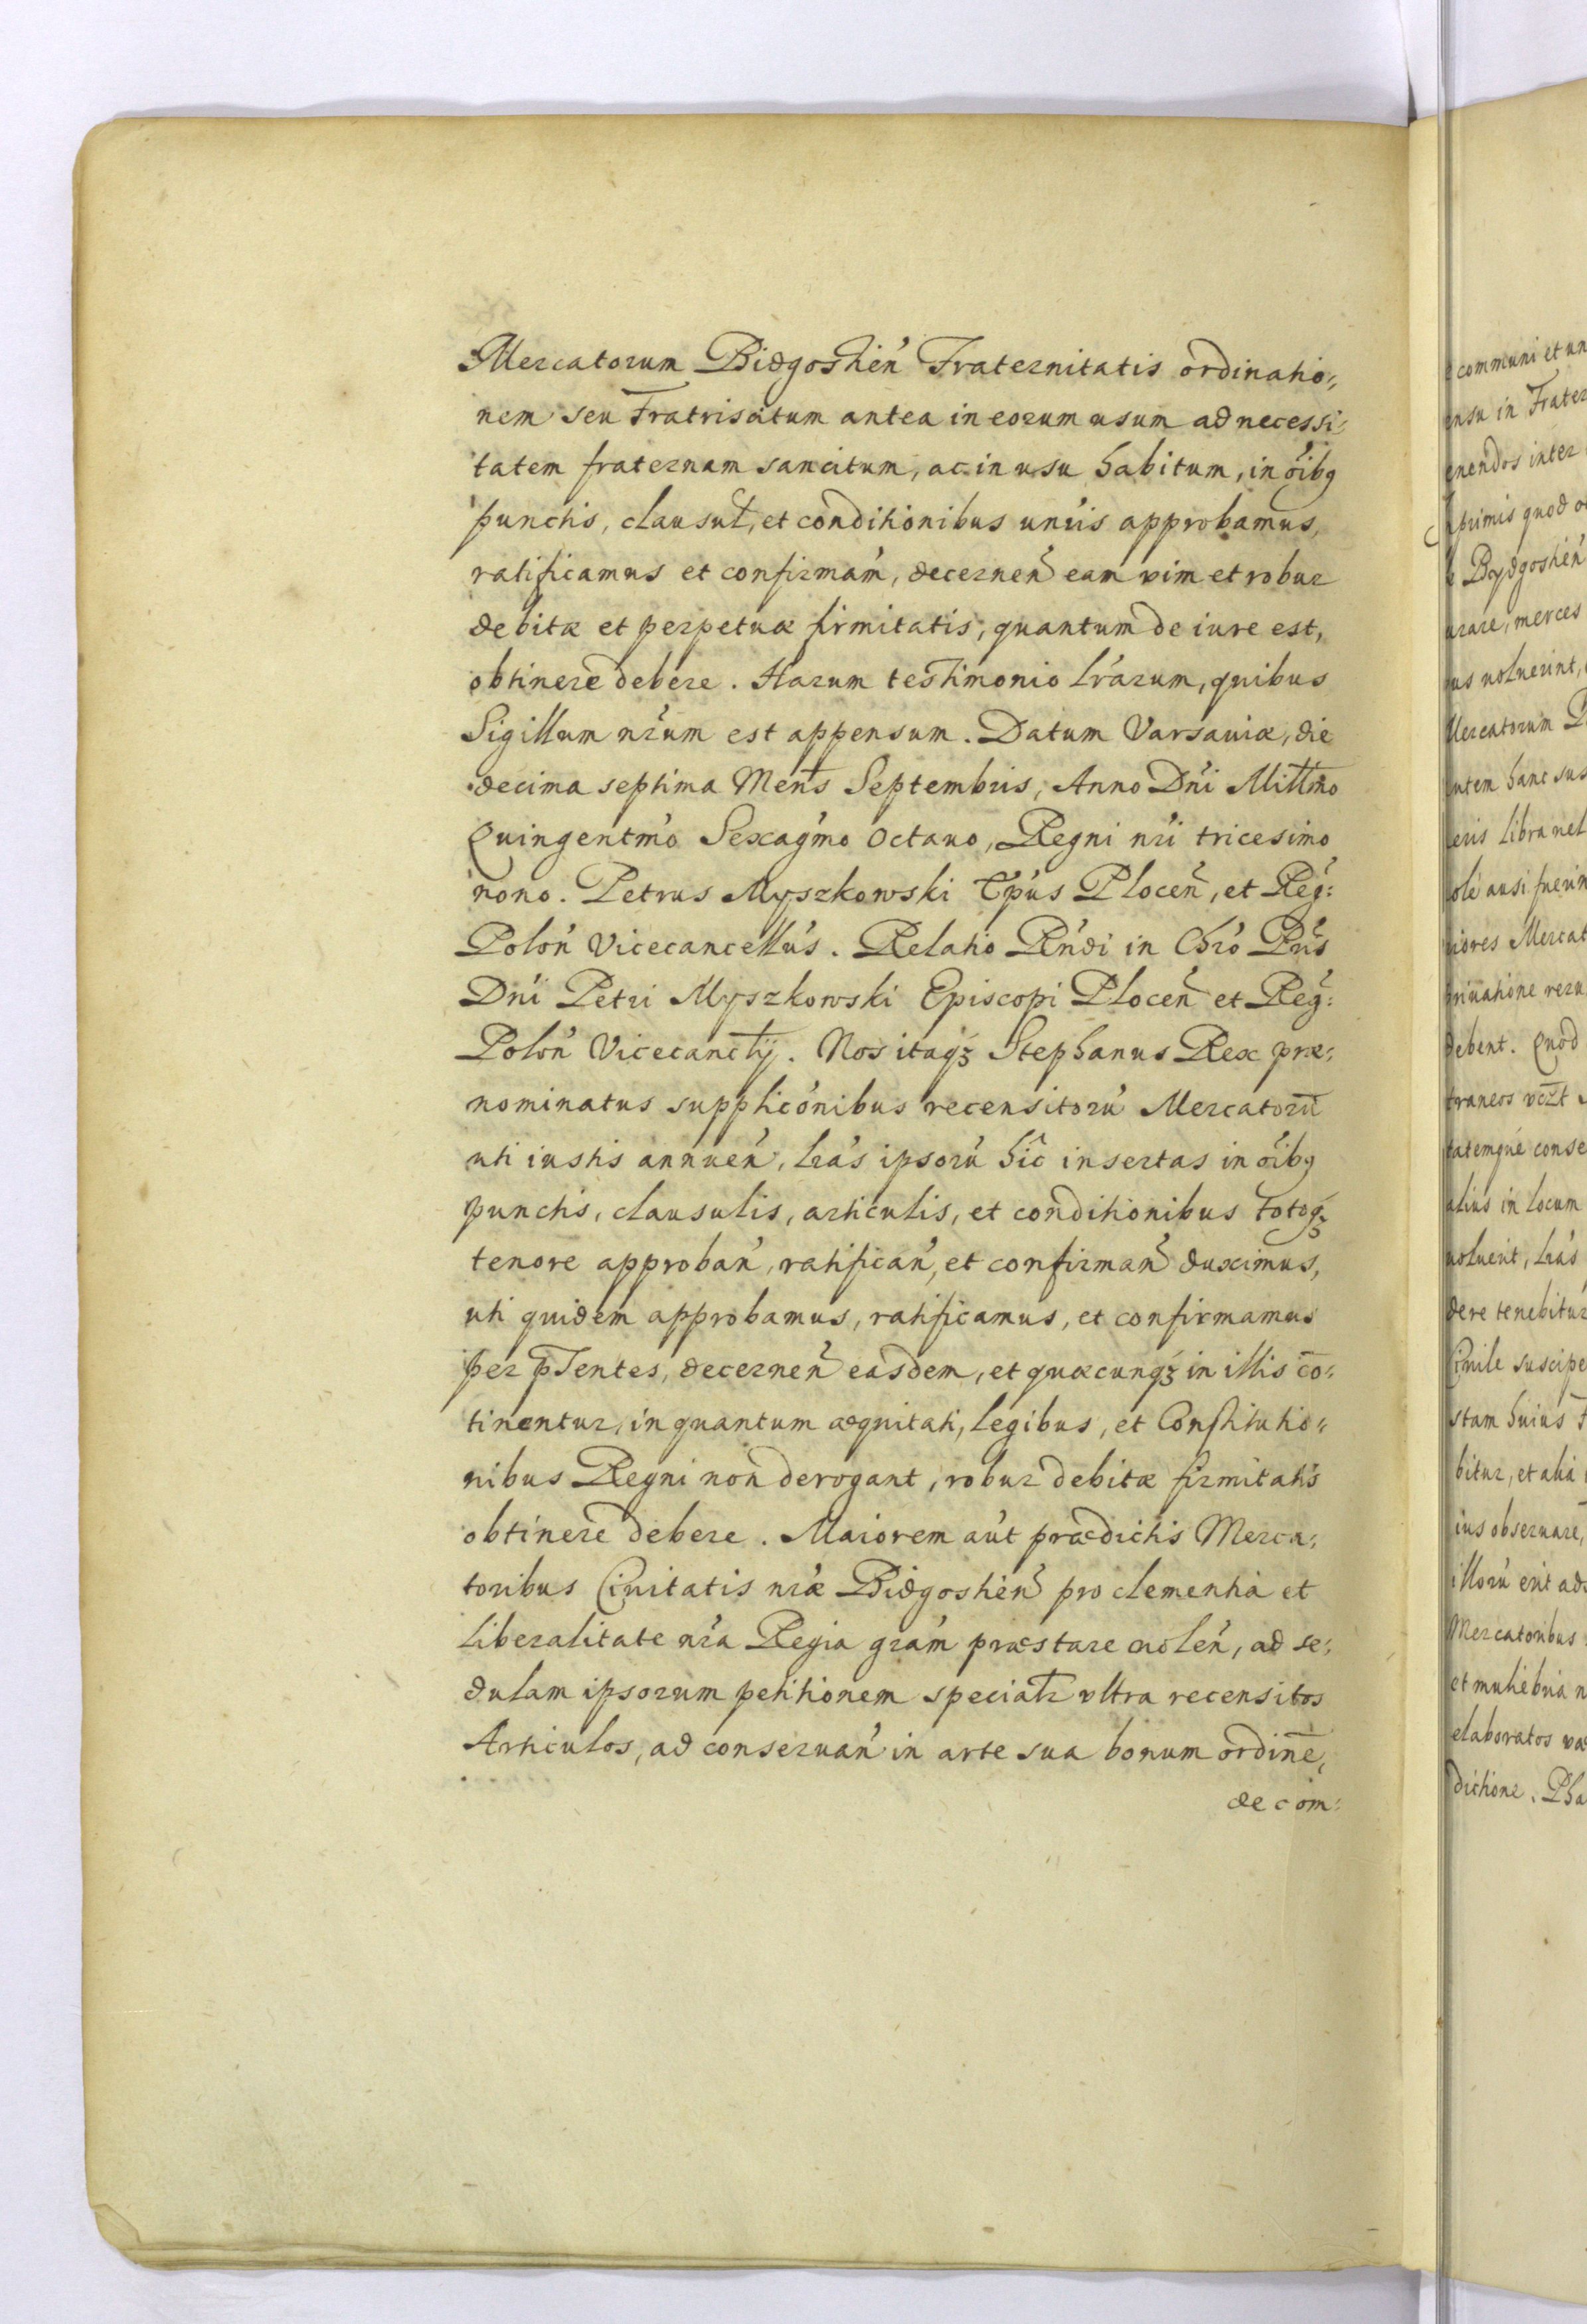 Mercatorum Bidgostien̄ Fraternitatis ordinatio:
nem seu Fratrisatum antea in eorum usum ad necessi:
tatem fraternam sancitum, ac in usu habitum, in oībq
punctis, clausul̄, et conditionibus unīis approbamus,
ratificamus et confirmam̄, decernen̄ eam vim et robur
debitæ et perpetuæ firmitatis, quantum de iure est,
obtinere debere. Harum testimonio lr̄arum, quibus
Sigillum nr̄um est appensum. Datum Varsauiæ, die
decima septima Men̄s Septembris, Anno Dn̄i Mill̄mo
Quingentm̄o Sexagm̄o Octauo, Regni nr̄i tricesimo
nono. Petrus Myszkowski Ep̄us Plocen̄, et Reḡ:
Polon̄ Vicecancelluś. Relatio Rn̄di in Chr̄o Pr̄is
Dn̄i Petri Myszkowski Episcopi Plocen̄ et Reḡ:
Polon̄ Vicecanc̄llij. Nos itaqȝ Stephanus Rex præ:
nominatus supplicōnibus recensitorū Mercatorū
uti iustis annuen̄, lr̄as ipsorū hic insertas in oībq
punctis, clausulis, articulis, et conditionibus totoqȝ
tenore approban̄, ratifican̄, et confirman̄ duximus,
uti quidem approbamus, ratificamus, et confirmamus
per p̄sentes, decernen̄ easdem, et quæcunqȝ in illis cō:
tinentur, in quantum æquitati, legibus, et Constitutio:
nibus Regni non derogant, robur debitæ firmitatis
obtinere debere. Maiorem aūt prædictis Merca:
toribus Ciuitatis nr̄æ Bidgostien̄ pro clementia et
liberalitate nr̄a Regia gr̄am præstare uolen̄, ad se:
dulam ipsorum petitionem specialr̄ vltra recensitos
Articulos, ad conseruan̄ in arte sua bonum ordinē,
de com:
communi et un
ensu in Frater
enendos inter
primis quod o
Bydgostien̄
arare, merces
us uoluerint,
Mercatorum
autem hanc sus
eris libra uel
ole ausi fuerin
iores Mercat
priuatione reru
debent. Quod
traneos vcz̄t
tatemque conse
alius in locum
uoluerit, lr̄as
dere tenebitur
Ciuile suscipe
stam huius F
bitur, et alia
ius obseruare,
illorū erit ad
Mercatoribus
et muliebria n
elaboratos va
dictione. Pha